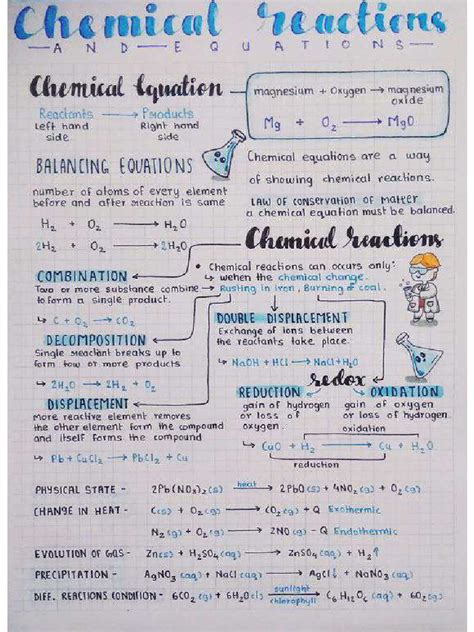 Chemical reactions
AND EQUATIONS
Chemical Equation
Reactants → Products
Left hand side
Right hand side
magnesium + oxygen → magnesium oxide
Mg + O₂ → MgO
BALANCING EQUATIONS
number of atoms of every element
before and after reaction is same
H₂ + O₂ → H₂O
2H₂ + O₂ → 2H₂O
Chemical equations are a way
of showing chemical reactions.
LAW OF CONSERVATION OF MATTER
a chemical equation must be balanced.
Chemical reactions
• Chemical reactions can occurs only:
↳ wehen the chemical change.
↳ Rusting in iron, Burning of coal.
COMBINATION
Two or more substance combine
to form a single product.
↳ C + O₂ → CO₂
DECOMPOSITION
Single reactant breaks up to
form tow or more products
↳ 2H₂O → 2H₂ + O₂
DISPLACEMENT
More reactive element removes
the other element form the compound
and itself forms the compound
↳ Pb + CuCl₂ → PbCl₂ + Cu
DOUBLE DISPLACEMENT
Exchange of ions between
the reactants take place.
↳ NaOH + HCl → NaCl + H₂O
redox
REDUCTION
gain of hydrogen
or loss of
oxygen.
OXIDATION
gain of oxygen
or loss of hydrogen
oxidation
↳ CuO + H₂ → Cu + H₂O
reduction
PHYSICAL STATE - 2Pb(NO₃)₂(s) heat→ 2PbO(s) + 4NO₂(g) + O₂(g)
CHANGE IN HEAT - C(s) + O₂(g) → CO₂(g) + Q Exothermic
N₂(g) + O₂(g) → 2NO(g) - Q Endothermic
EVOLUTION OF GAS - Zn(s) + H₂SO₄(aq) → ZnSO₄(aq) + H₂↑
PRECIPITATION - AgNO₃(aq) + NaCl(aq) → AgCl↓ + NaNO₃(aq)
DIFF. REACTIONS CONDITION - 6CO₂(g) + 6H₂O(l) sunlight→ chlorophyll C₆H₁₂O₆(aq) + 6O₂(g)